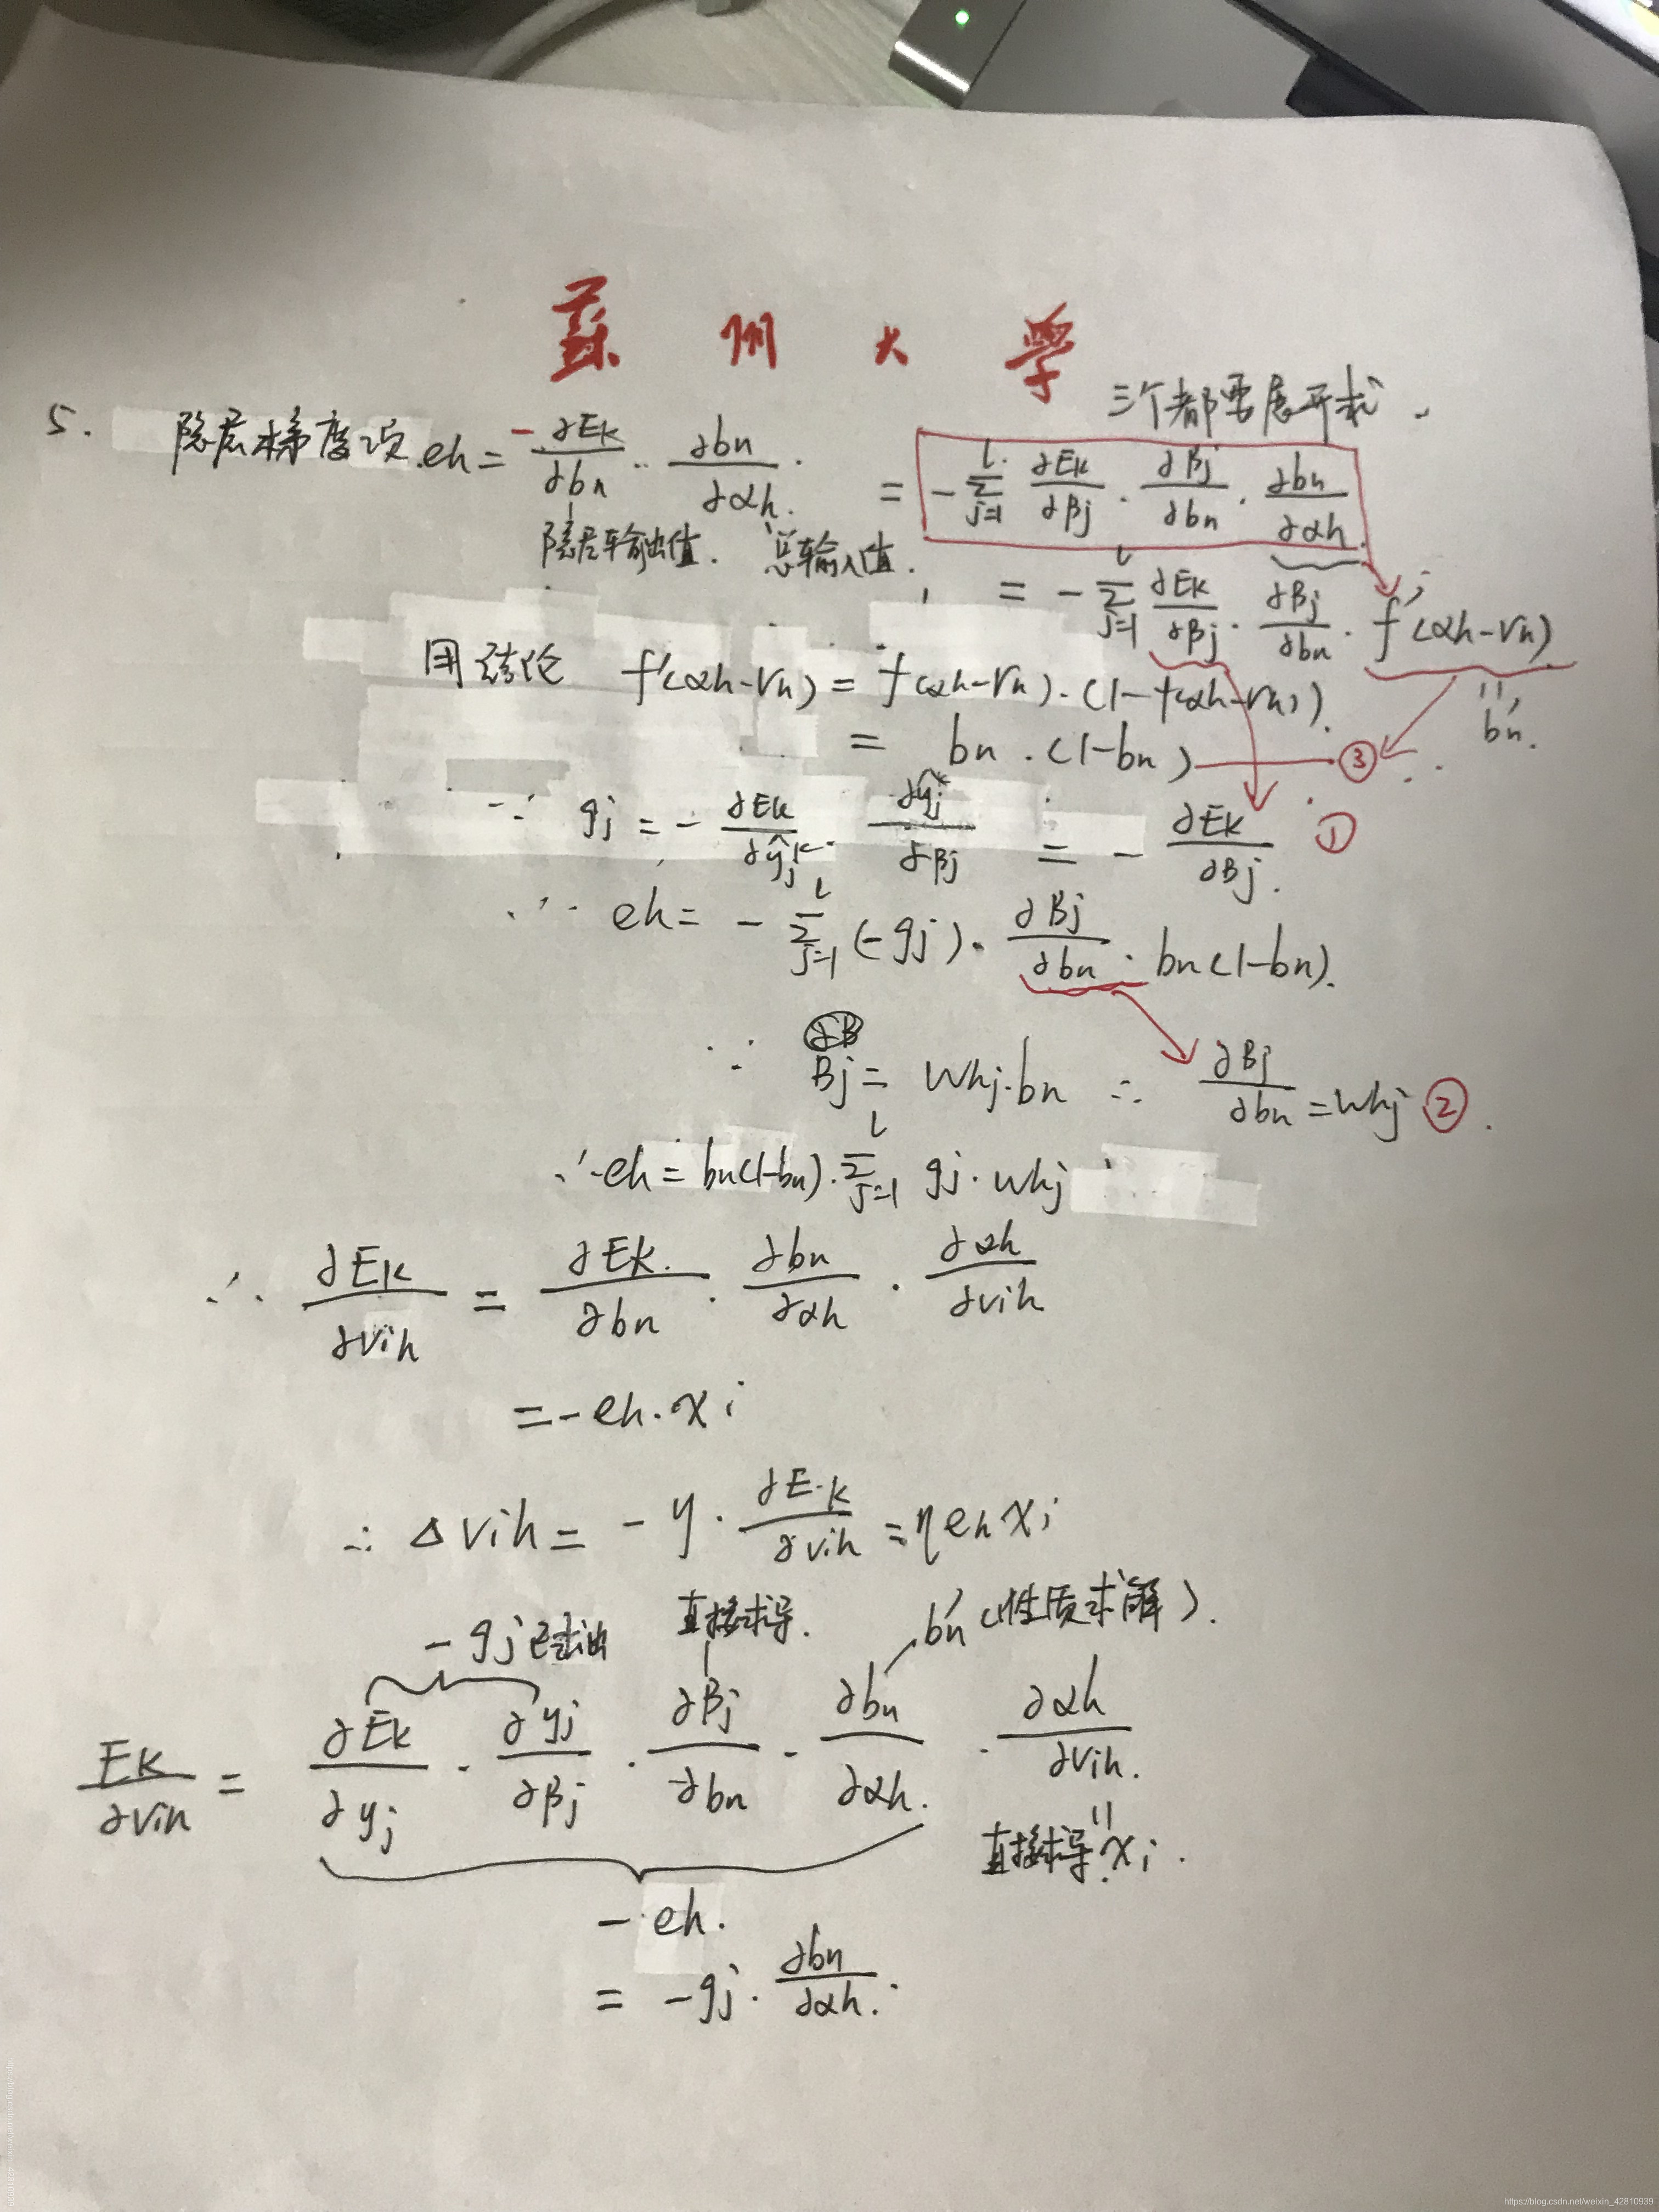 蘇州大学
三个都要展开求.
5. 隐层梯度项 eh = - ∂Ek/∂bn · ∂bn/∂αh. = - Σ(j=1, l) ∂Ek/∂βj · ∂βj/∂bn · ∂bn/∂αh.
隐层输出值. 总输入值.
= - Σ(j=1, l) ∂Ek/∂βj · ∂βj/∂bn · f'(αh-rn)
用结论 f'(αh-rn) = f(αh-rn)·(1-f(αh-rn)).
" bn'.
= bn·(1-bn) ③
∵ gj = - ∂Ek/∂ŷj^k · ∂ŷj^k/∂βj = - ∂Ek/∂βj. ①
∴ eh = - Σ(j=1, l) (-gj)· ∂βj/∂bn · bn(1-bn).
∵ βj = whj·bn ∴ ∂βj/∂bn = whj ②.
∴ eh = bn(1-bn)· Σ(j=1, l) gj·whj
∴ ∂Ek/∂vih = ∂Ek/∂bn · ∂bn/∂αh · ∂αh/∂vih
= -eh·xi
∴ Δvih = -η· ∂Ek/∂vih = ηehxi
-gj已求出 直接求导. bn'(性质求解).
Ek/∂vih = ∂Ek/∂yj · ∂yj/∂βj · ∂βj/∂bn · ∂bn/∂αh. · ∂αh/∂vih.
直接求导 " xi.
-eh.
= -gj· ∂bn/∂αh.
https://blog.csdn.net/weixin_42810939